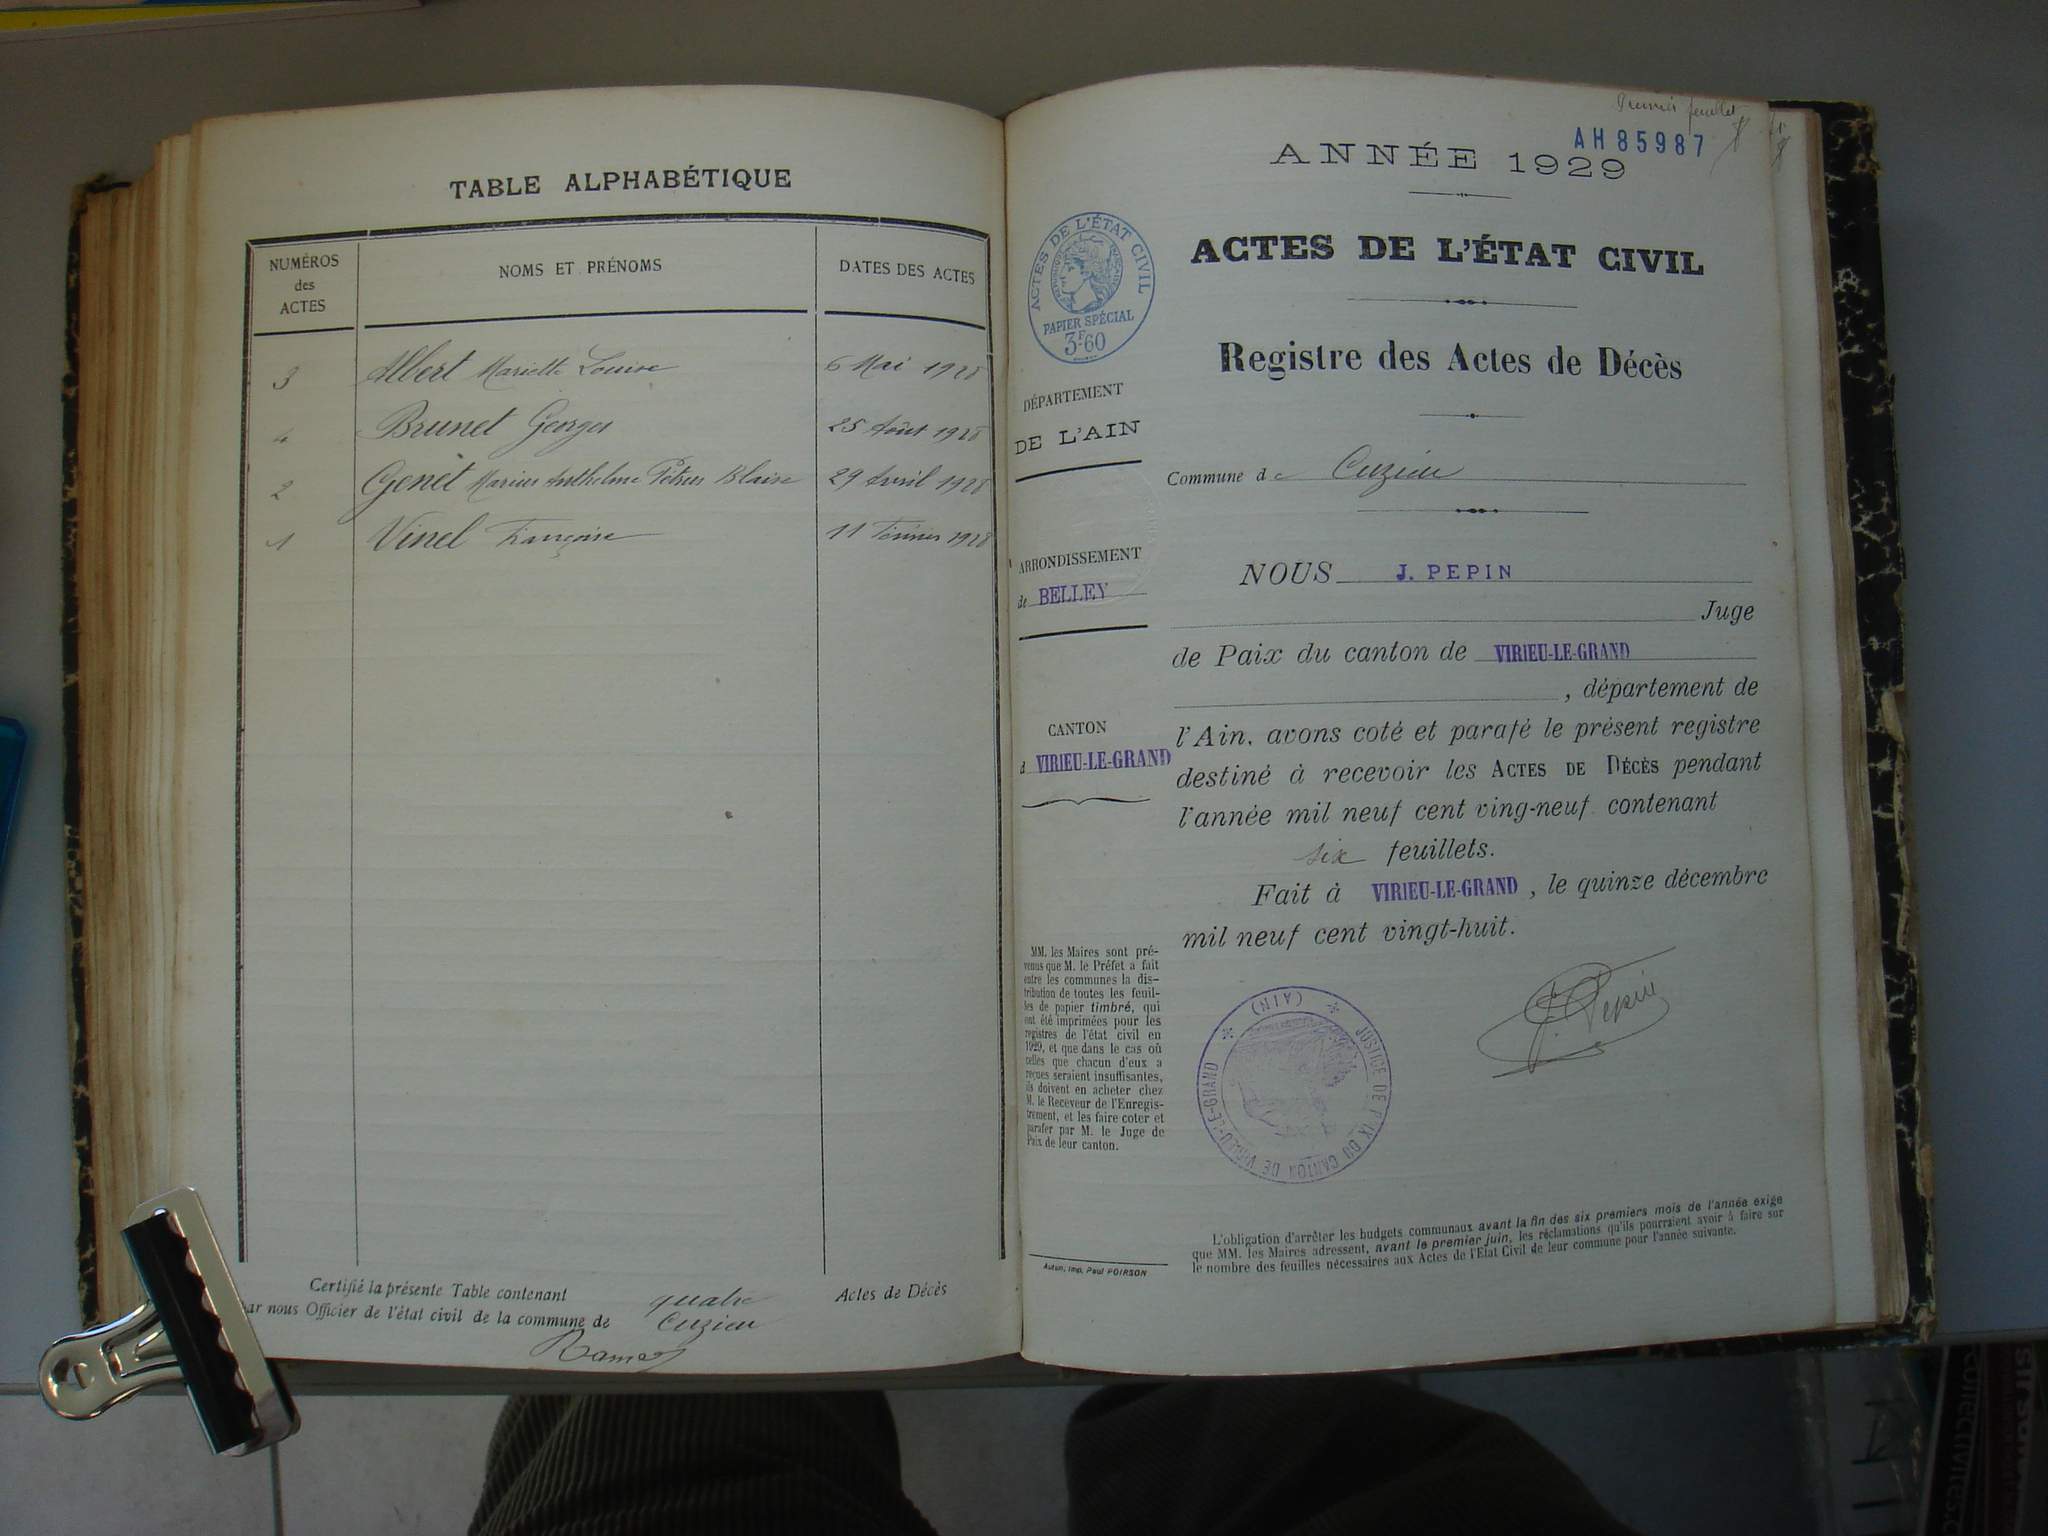 TABLE ALPHABÉTIQUE
NUMÉROS
des
ACTES
NOMS ET PRÉNOMS
DATES DES ACTES
3 Albert Mariette Louise 6 Mai 1928
4 Brunet Georges 25 Août 1928
2 Genet Marius Anthelme Pétrus Blaise 29 Avril 1928
1 Vinel Françoise 11 Février 1928
Certifié la présente Table contenant quatre Actes de Décès
par nous Officier de l'état civil de la commune de Cuzieu
Premier feuillet
AH 85987
ANNÉE 1929
ACTES DE L'ÉTAT CIVIL
PAPIER SPÉCIAL
3F60
ACTES DE L'ÉTAT CIVIL
Registre des Actes de Décès
DÉPARTEMENT
DE L'AIN
Commune de Cuzieu
ARRONDISSEMENT
de BELLEY
CANTON
d VIRIEU-LE-GRAND
NOUS J. PEPIN
Juge
de Paix du canton de VIRIEU-LE-GRAND
, département de
l'Ain, avons coté et parafé le présent registre
destiné à recevoir les ACTES DE DÉCÈS pendant
l'année mil neuf cent ving-neuf contenant
six feuillets.
Fait à VIRIEU-LE-GRAND , le quinze décembre
mil neuf cent vingt-huit.
Pepin
JUSTICE DE PAIX DU CANTON DE VIRIEU-LE-GRAND
(AIN)
MM. les Maires sont pré-
venus que M. le Préfet a fait
entre les communes la dis-
tribution de toutes les feuil-
les de papier timbré, qui
ont été imprimées pour les
registres de l'état civil en
1929, et que dans le cas où
celles que chacun d'eux a
reçues seraient insuffisantes,
ils doivent en acheter chez
M. le Receveur de l'Enregis-
trement, et les faire coter et
parafer par M. le Juge de
Paix de leur canton.
Autun, Imp. Paul POIRSON
L'obligation d'arrêter les budgets communaux avant la fin des six premiers mois de l'année exige
que MM. les Maires adressent, avant le premier juin, les réclamations qu'ils pourraient avoir à faire sur
le nombre des feuilles nécessaires aux Actes de l'Etat Civil de leur commune pour l'année suivante.